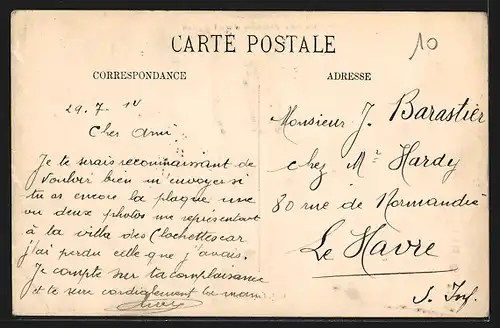 CARTE POSTALE
10
CORRESPONDANCE
ADRESSE
29.7.14
Cher Ami
Je te serais reconnaissant de
vouloir bien m'envoyer si
tu as encore la plaque une
ou deux photos me représentant
à la villa des Clochettes car
j'ai perdu celle que j'avais.
Je compte sur ta complaisance
et te serre cordialement la main
Monsieur J. Barastier
chez Mr Hardy
80 rue de Normandie
Le Havre
S. Inf.